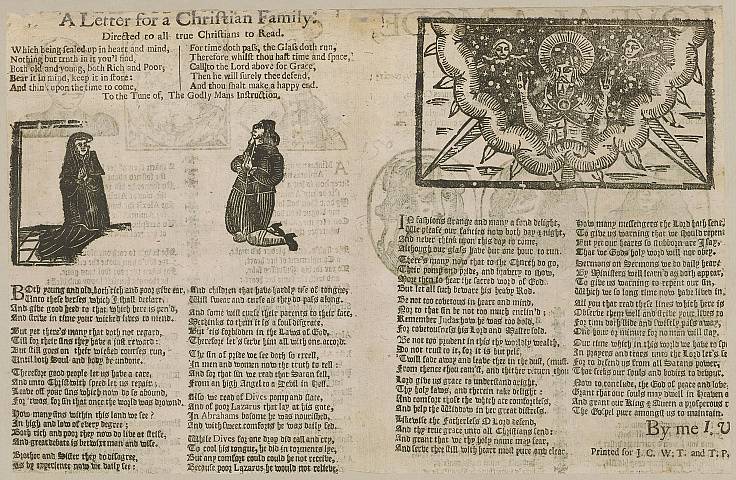 A Letter for a Christian Family:
Directed to all true Christians to Read.
Which being sealed up in heart and mind,
Nothing but truth in it you'l find,
Both old and young, both Rich and Poor,
Bear it in mind, keep it in store:
And think upon the time to come,
For time doth pass, the Glass doth run,
Therefore whilst thou hast time and space,
Call to the Lord above for Grace,
Then he will surely thee defend,
And thou shalt make a happy end.
To the Tune of, The Godly Mans Instruction.
BOth young and old, both rich and poor give ear,
Unto these verses which I shall declare,
And give good heed to that which here is pen'd,
And strive in time your wicked lives to mend.
But yet there's many that doth not regard,
Till for their sins they have a just reward:
But still goes on their wicked courses run,
Until both Soul and body be undone.
Therefore good people let us have a care,
And unto Christ with speed let us repair,
Leave off your sins which now do so abound,
For 'twas for sin that once the world was drownd.
How many sins within this land we see?
In high and low of every degree;
Both rich and poor they now do live at strife,
And great debate is between man and wife.
Brother and Sister they do disagree,
As by experience now we daily see:
And children that have hardly use of tongue,
Will swear and curse as they do pass along.
And some will curse their parents to their face,
Methinks to them it is a foul disgrace,
For it's forbidden in the Laws of God,
Therefore let's serve him all with one accord.
The sin of pride we see doth so excell,
In men and women now the truth to tell:
And for that sin we read that Satan fell,
From an high Angel to a Devil in Hell.
Also we read of Dives pomp and state,
And of poor Lazarus that lay at his gate,
In Abrahams bosome he was nourished,
And with sweet comforts he was daily fed.
While Dives for one drop did call and cry,
To cool his tongue, he did in torments lye,
But any comfort could could he not receive,
Because poor Lazarus he would not relieve.
IN fashions strange and many a fond delight,
We please our fancies now both day & night,
And never think upon this day to come,
Altho' our glass have but one hour to run.
There's many now that to the Church do go,
Their pomp and pride, and bravery to show,
More then to hear the sacred word of God.
But let all such beware his heavy Rod.
Be not too covetous in heart and mind,
Nor to that sin be not too much enclin'd;
Remember Judas how he was too bold,
For covetousness his Lord and Master sold.
Be not too prudent in this thy worldly wealth,
Do not trust to it, for it is but pelf,
'Twill fade away and leave thee in the dust, (must.
From thence thou cam'st, and thither return thou
Lord give us grace to understand aright,
Thy holy laws, and therein take delight:
And comfort those that which are comfortless,
And help the Widdow in her great distress.
Likewise the Fatherless O Lord defend,
And thy true grace into all Christians send:
And grant that we thy holy name may fear,
And serve thee still with heart most pure and clear.
How many messengers the Lord hath sent,
To give us warning that we should repent
But yet our hearts so stubborn are I say,
That we Gods holy word will not obey.
Sermons on Sermons we do daily hear
By Ministers well learn'd as doth appear,
To give us warning to repent our sin,
Which we so long time now have lived in.
All you that read these lines which here is
Observe them well and strive your lives to
For time doth slide and swiftly pass away,
One hour or minute for no man will stay.
Our time which in this world we have to
In prayers and tears unto the Lord let's
For to defend us from all Satans power,
That seeks our souls and bodies to devour.
Now to conclude, the God of peace and love,
Grant that our souls may dwell in heaven a
And grant our King & Queen a prosperous r
The Gospel pure amongst us to maintain.
By me I. V
Printed for J. C. W; T. and T; P,